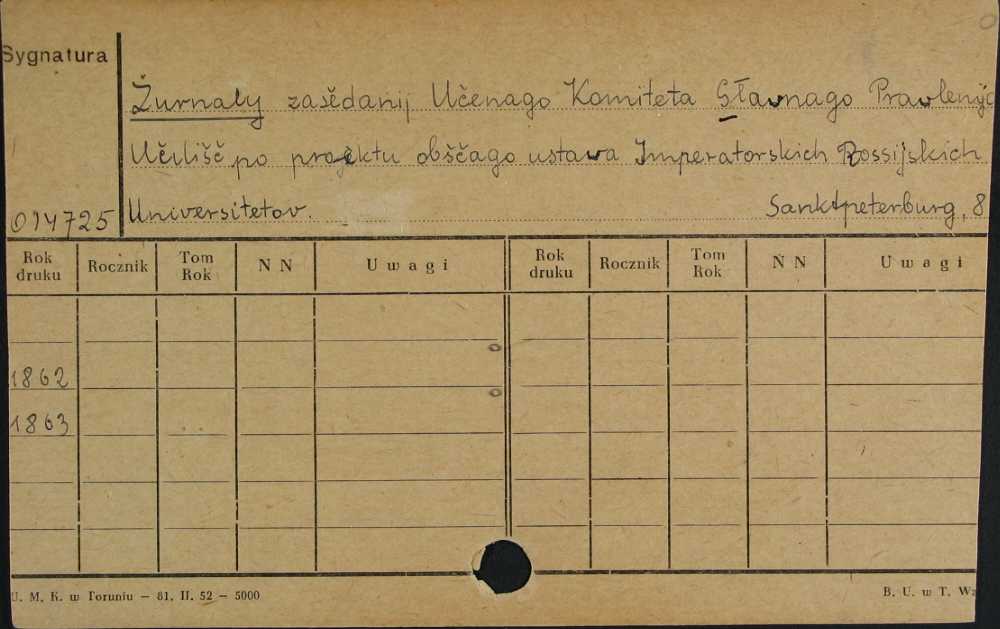 Sygnatura
Žurnały zasědanij Učenago Komiteta Gławnago Pravlenija
Učilišč po proěktu obščago ustawa Imperatorskich Rossijskich
014725 Universitetov. Sanktpeterburg, 8
Rok druku Rocznik Tom Rok N N Uwagi Rok druku Rocznik Tom Rok N N Uwagi
1862
1863
U. M. K. w Toruniu — 81. II. 52 — 5000 B. U. w T. Wz